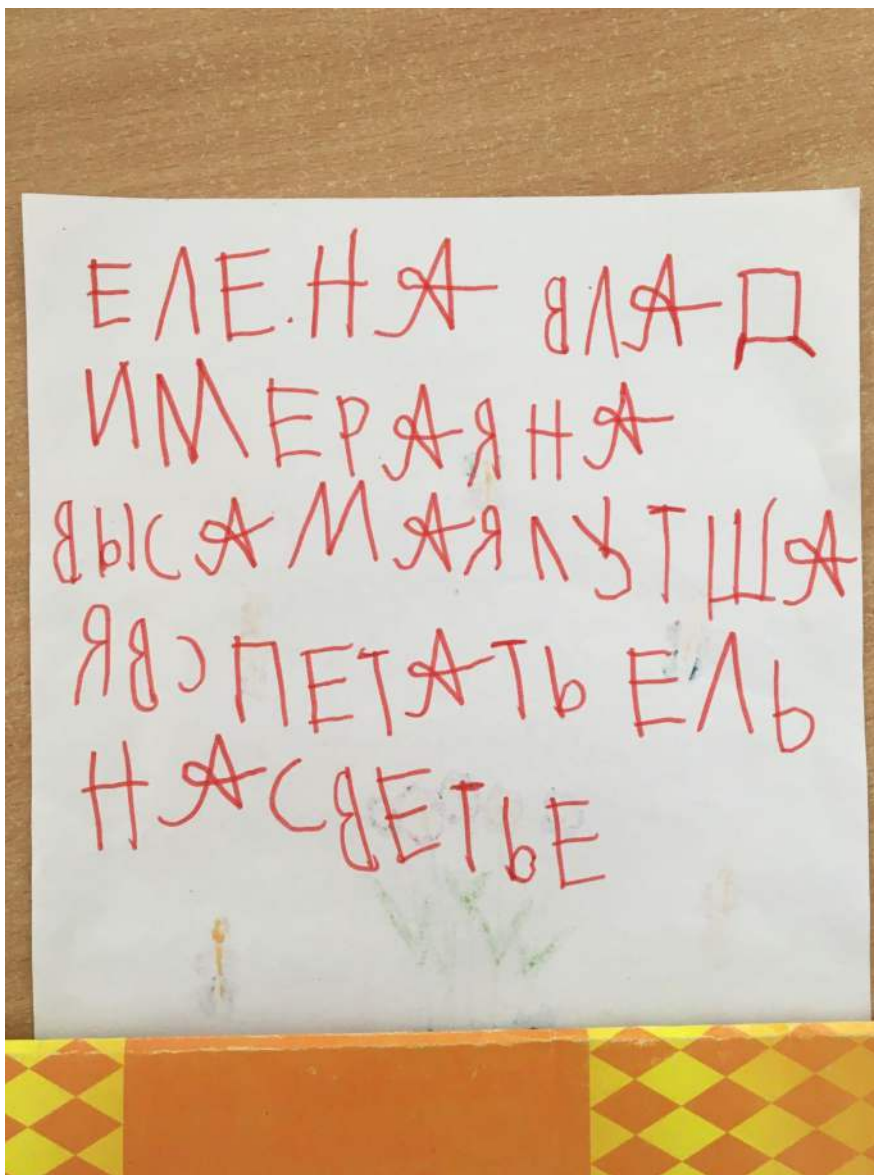 ЕЛЕ.НА ВЛАД
ИМЕРАЯНА
ВЫСАМАЯЛУТША
ЯВСПЕТАТЬ ЕЛЬ
НАСВЕТЬЕ